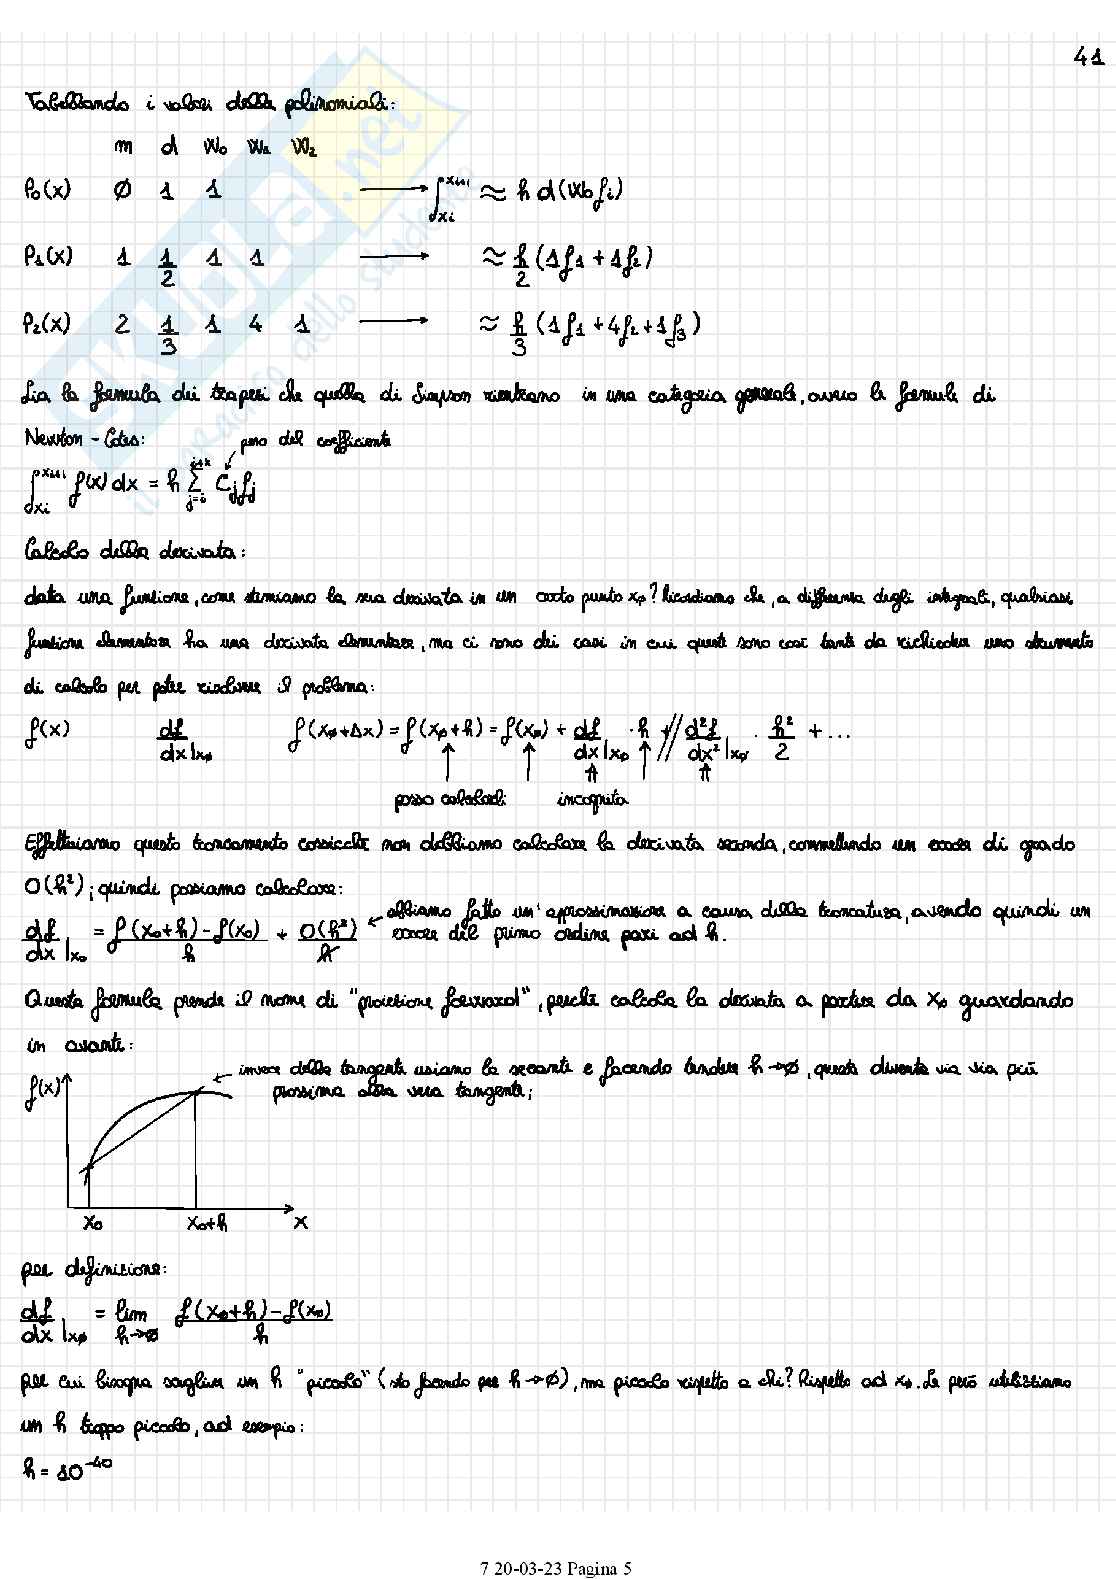 41
Tabellando i valori delle polinomiali:
m d W₀ W₁ W₂
P₀(x) ∅ 1 1 → ∫_{xi}^{xi+1} ≈ h d (W₀ fi)
P₁(x) 1 1/2 1 1 → ≈ h/2 (1f₁ + 1f₂)
P₂(x) 2 1/3 1 4 1 → ≈ h/3 (1f₁ + 4f₂ + 1f₃)
Sia la formula dei trapezi che quella di Simpson rientrano in una categoria generale, ovvero le formule di
Newton - Cotes: peso del coefficiente
∫_{xi}^{xi+1} f(x) dx = h Σ_{j=i}^{i+k} Cj fj
Calcolo della derivata:
data una funzione, come stimiamo la sua derivata in un certo punto x∅? Ricordiamo che, a differenza degli integrali, qualsiasi
funzione elementare ha una derivata elementare, ma ci sono dei casi in cui queste sono così tante da richieder uno strumento
di calcolo per poter risolvere il problema:
f(x) df/dx|x∅ f(x∅+Δx) = f(x∅+h) = f(x∅) + df/dx|x∅ · h + // d²f/dx²|x∅ · h²/2 + ...
posso calcolarli incognita
Effettuiamo questo troncamento cosicché non dobbiamo calcolare la derivata seconda, commettendo un errore di grado
O(h²); quindi possiamo calcolare:
df/dx|x₀ = f(x₀+h) - f(x₀)/h + O(h²)/h ← abbiamo fatto un' approssimazione a causa della troncatura, avendo quindi un
errore del primo ordine pari ad h.
Questa formula prende il nome di "proiezione forward", perché calcola la derivata a partire da x∅ guardando
in avanti:
f(x) ← invece della tangente usiamo la secante e facendo tendere h→∅, questa diventa via via più
prossima alla vera tangente;
x₀ x₀+h x
per definizione:
df/dx|x∅ = lim h→∅ f(x∅+h) - f(x∅)/h
per cui bisogna scegliere un h "piccolo" (sto facendo per h→∅), ma piccolo rispetto a chi? Rispetto ad x∅. Se però utilizziamo
un h troppo piccolo, ad esempio:
h = 10⁻⁴⁰
7 20-03-23 Pagina 5